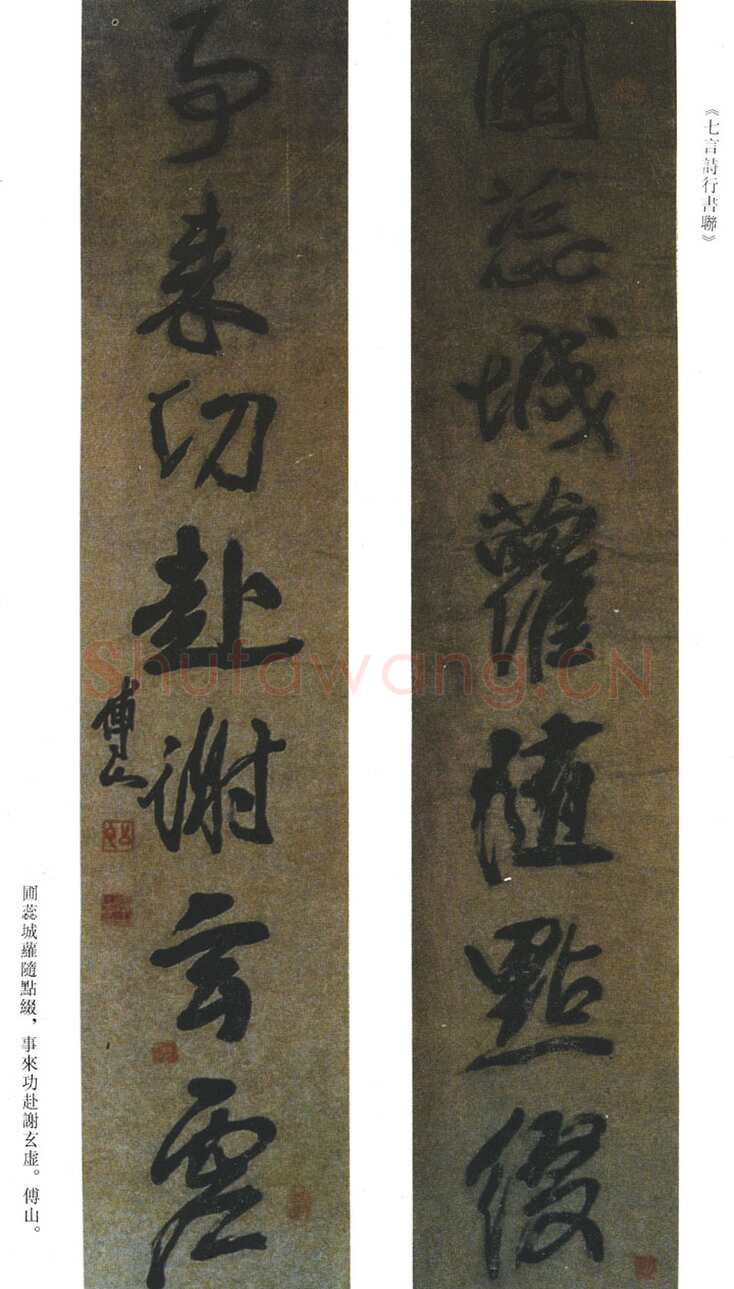 《七言詩行書聯》
圃蕊城蘿隨點綴
事來功赴謝玄虛
傅山
圃蕊城蘿隨點綴，事來功赴謝玄虛。傅山。
Shufawang.CN